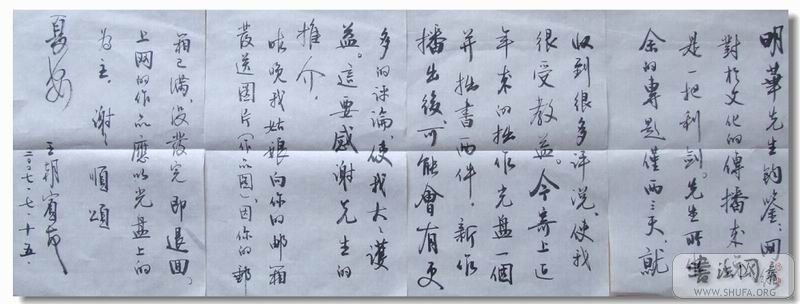 明華先生鈞鑒:网
對於文化的傳播来
是一把利劍。先生所
余的專題僅两三天,就
收到很多評說,使我
很受教益。今寄上近
年来的拙作光盘一個
并拙書两件,新作
播出後,可能會有更
多的評論,使我大大獲
益。這要感謝先生的
推介。
昨晚我姑娘向你的邮箱
發送圖片(作品圖),因你的郵
箱已满,没發完即退回。
上网的作品應以光盘上的
為主。謝 順頌
夏安
王朝賓
二〇〇七.七.十五.
書法网
WWW.SHUFA.ORG